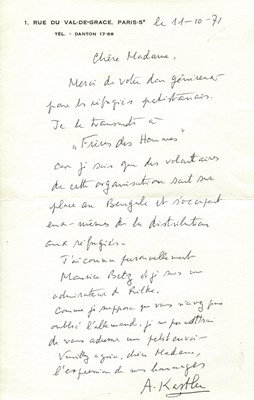 1, RUE DU VAL-DE-GRACE, PARIS-5ᵉ
TÉL. : DANTON 17-68
le 11-10-71
Chère Madame,
Merci de votre don généreux
pour les réfugiés pakistanais.
Je le transmets à
"Frères des Hommes"
car je sais que des volontaires
de cette organisation sont sur
place au Bengale et s'occupent
eux-mêmes de la distribution
aux réfugiés.
J'ai connu personnellement
Maurice Betz et je suis un
admirateur de Rilke.
Comme je suppose que vous n'avez pas
oublié l'allemand, je me permettrai
de vous adresser un petit envoi
Veuillez agréer, chère Madame,
l'expression de mes hommages
A. Kastler